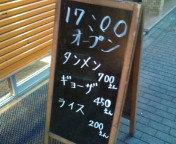 17:00
オープン
タンメン
700
えん
ギョーザ
450
えん
ライス
200
えん